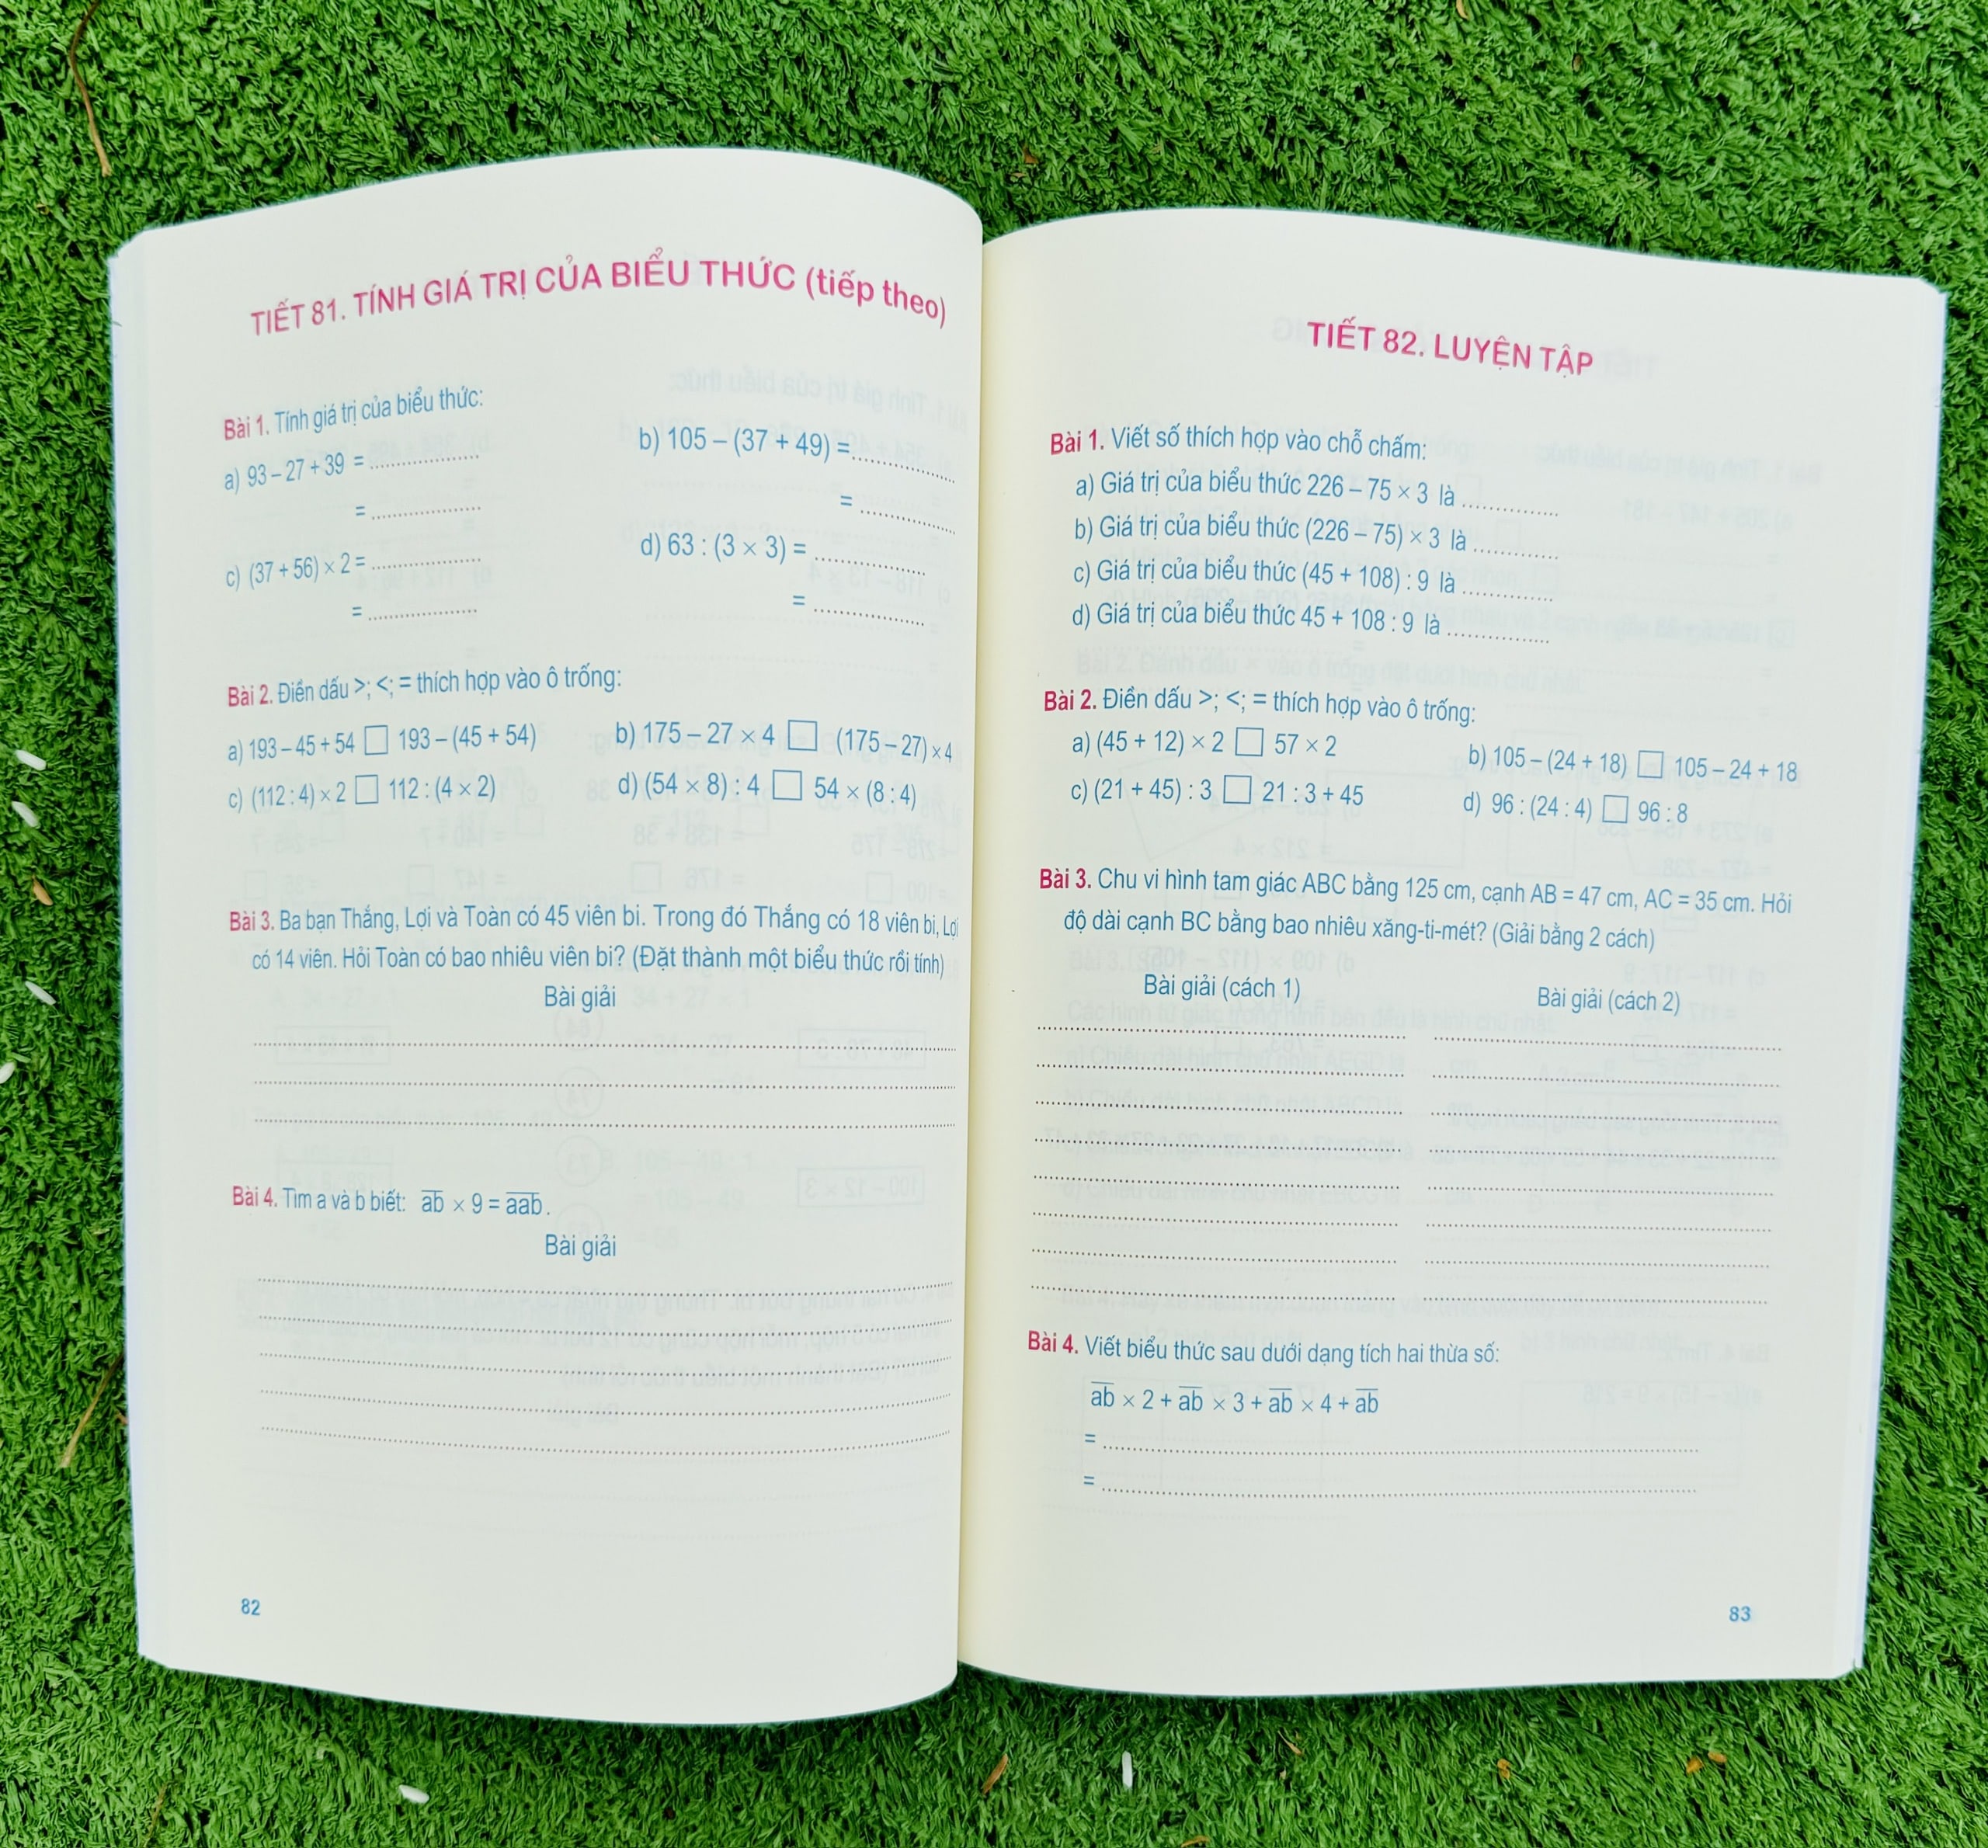 TIẾT 81. TÍNH GIÁ TRỊ CỦA BIỂU THỨC (tiếp theo)
Bài 1. Tính giá trị của biểu thức:
a) 93 – 27 + 39 = ....................
b) 105 – (37 + 49) = ....................
= ....................
= ....................
c) (37 + 56) × 2 = ....................
d) 63 : (3 × 3) = ....................
= ....................
= ....................
Bài 2. Điền dấu >; <; = thích hợp vào ô trống:
a) 193 – 45 + 54 □ 193 – (45 + 54)
b) 175 – 27 × 4 □ (175 – 27) × 4
c) (112 : 4) × 2 □ 112 : (4 × 2)
d) (54 × 8) : 4 □ 54 × (8 : 4)
Bài 3. Ba bạn Thắng, Lợi và Toàn có 45 viên bi. Trong đó Thắng có 18 viên bi, Lợi
có 14 viên. Hỏi Toàn có bao nhiêu viên bi? (Đặt thành một biểu thức rồi tính)
Bài giải
Bài 4. Tìm a và b biết: a̅b̅ × 9 = a̅a̅b̅.
Bài giải
82
TIẾT 82. LUYỆN TẬP
Bài 1. Viết số thích hợp vào chỗ chấm:
a) Giá trị của biểu thức 226 – 75 × 3 là ....................
b) Giá trị của biểu thức (226 – 75) × 3 là ....................
c) Giá trị của biểu thức (45 + 108) : 9 là ....................
d) Giá trị của biểu thức 45 + 108 : 9 là ....................
Bài 2. Điền dấu >; <; = thích hợp vào ô trống:
a) (45 + 12) × 2 □ 57 × 2
b) 105 – (24 + 18) □ 105 – 24 + 18
c) (21 + 45) : 3 □ 21 : 3 + 45
d) 96 : (24 : 4) □ 96 : 8
Bài 3. Chu vi hình tam giác ABC bằng 125 cm, cạnh AB = 47 cm, AC = 35 cm. Hỏi
độ dài cạnh BC bằng bao nhiêu xăng-ti-mét? (Giải bằng 2 cách)
Bài giải (cách 1)
Bài giải (cách 2)
Bài 4. Viết biểu thức sau dưới dạng tích hai thừa số:
a̅b̅ × 2 + a̅b̅ × 3 + a̅b̅ × 4 + a̅b̅
= ....................
= ....................
83